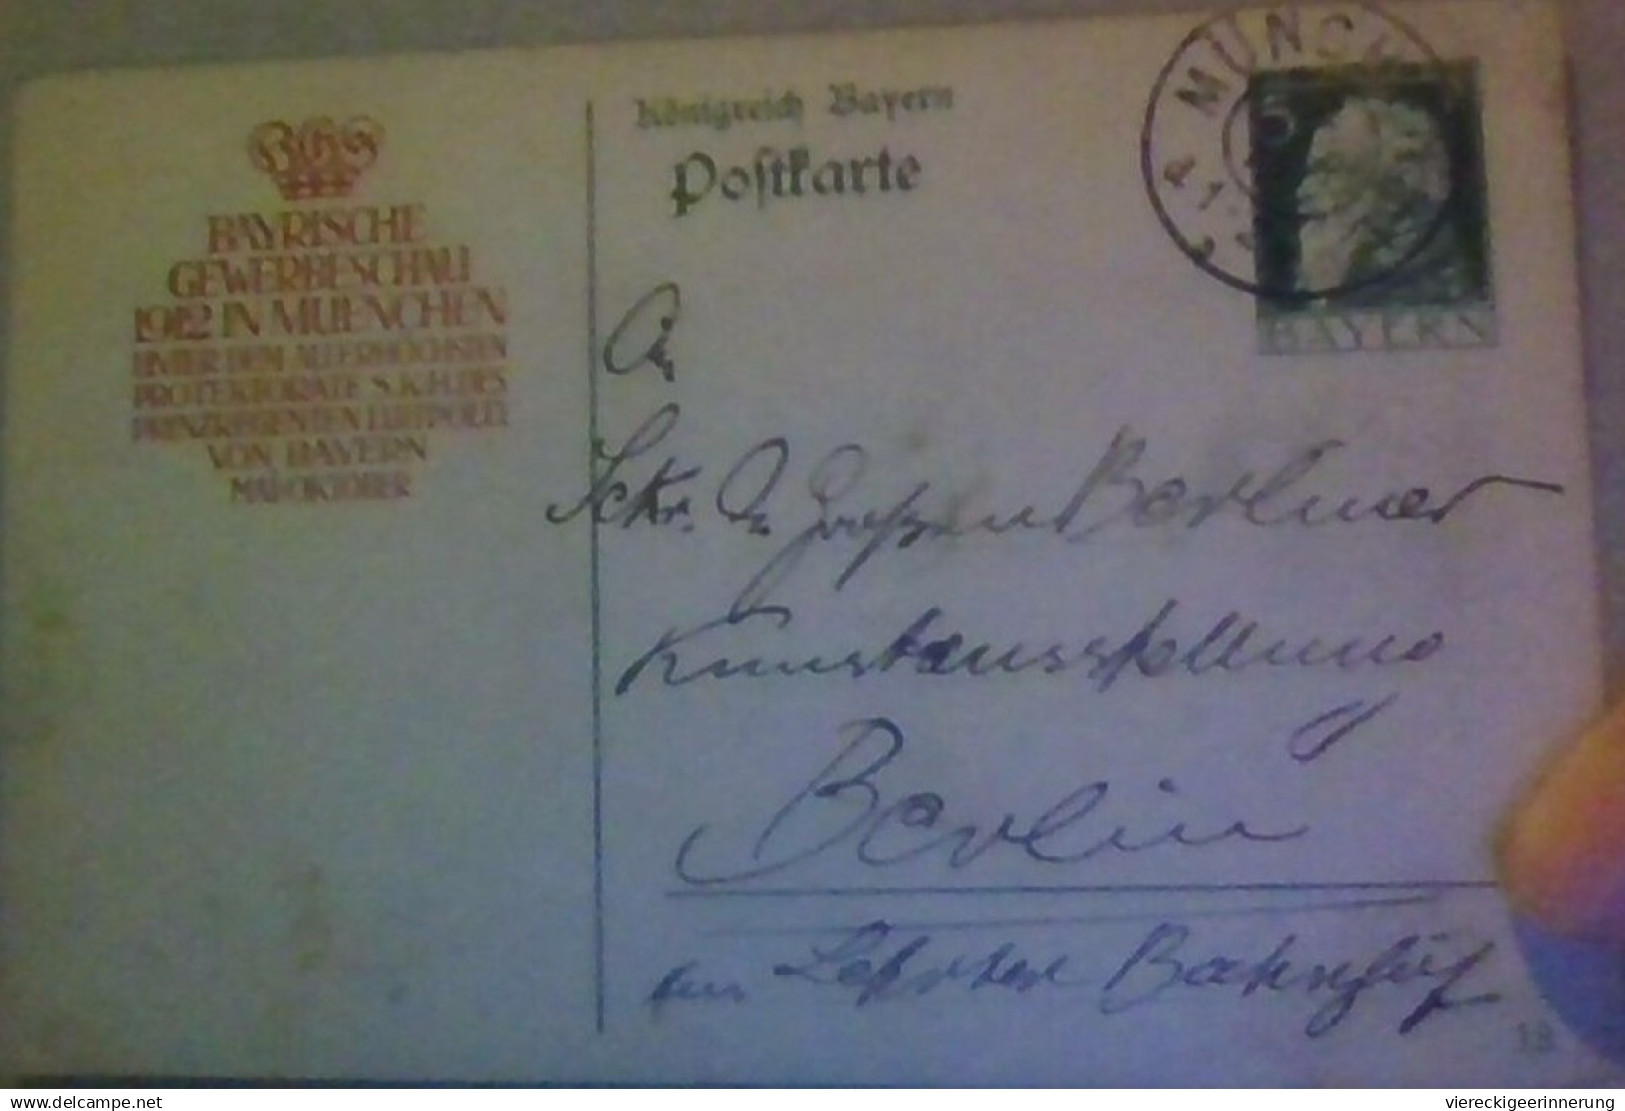 Königreich Bayern
Postkarte
MÜNCH
5
BAYERN
BGS
BAYRISCHE
GEWERBESCHAU
1912 IN MUENCHEN
UNTER DEM ALLERHÖCHSTEN
PROTEKTORATE S.K.H. DES
PRINZREGENTEN LUITPOLD
VON BAYERN
MAI-OKTOBER
An
Sekr. Der Großen Berliner
Kunstausstellung
Berlin
am Lehrter Bahnhof
18
www.delcampe.net
viereckigeerinnerung